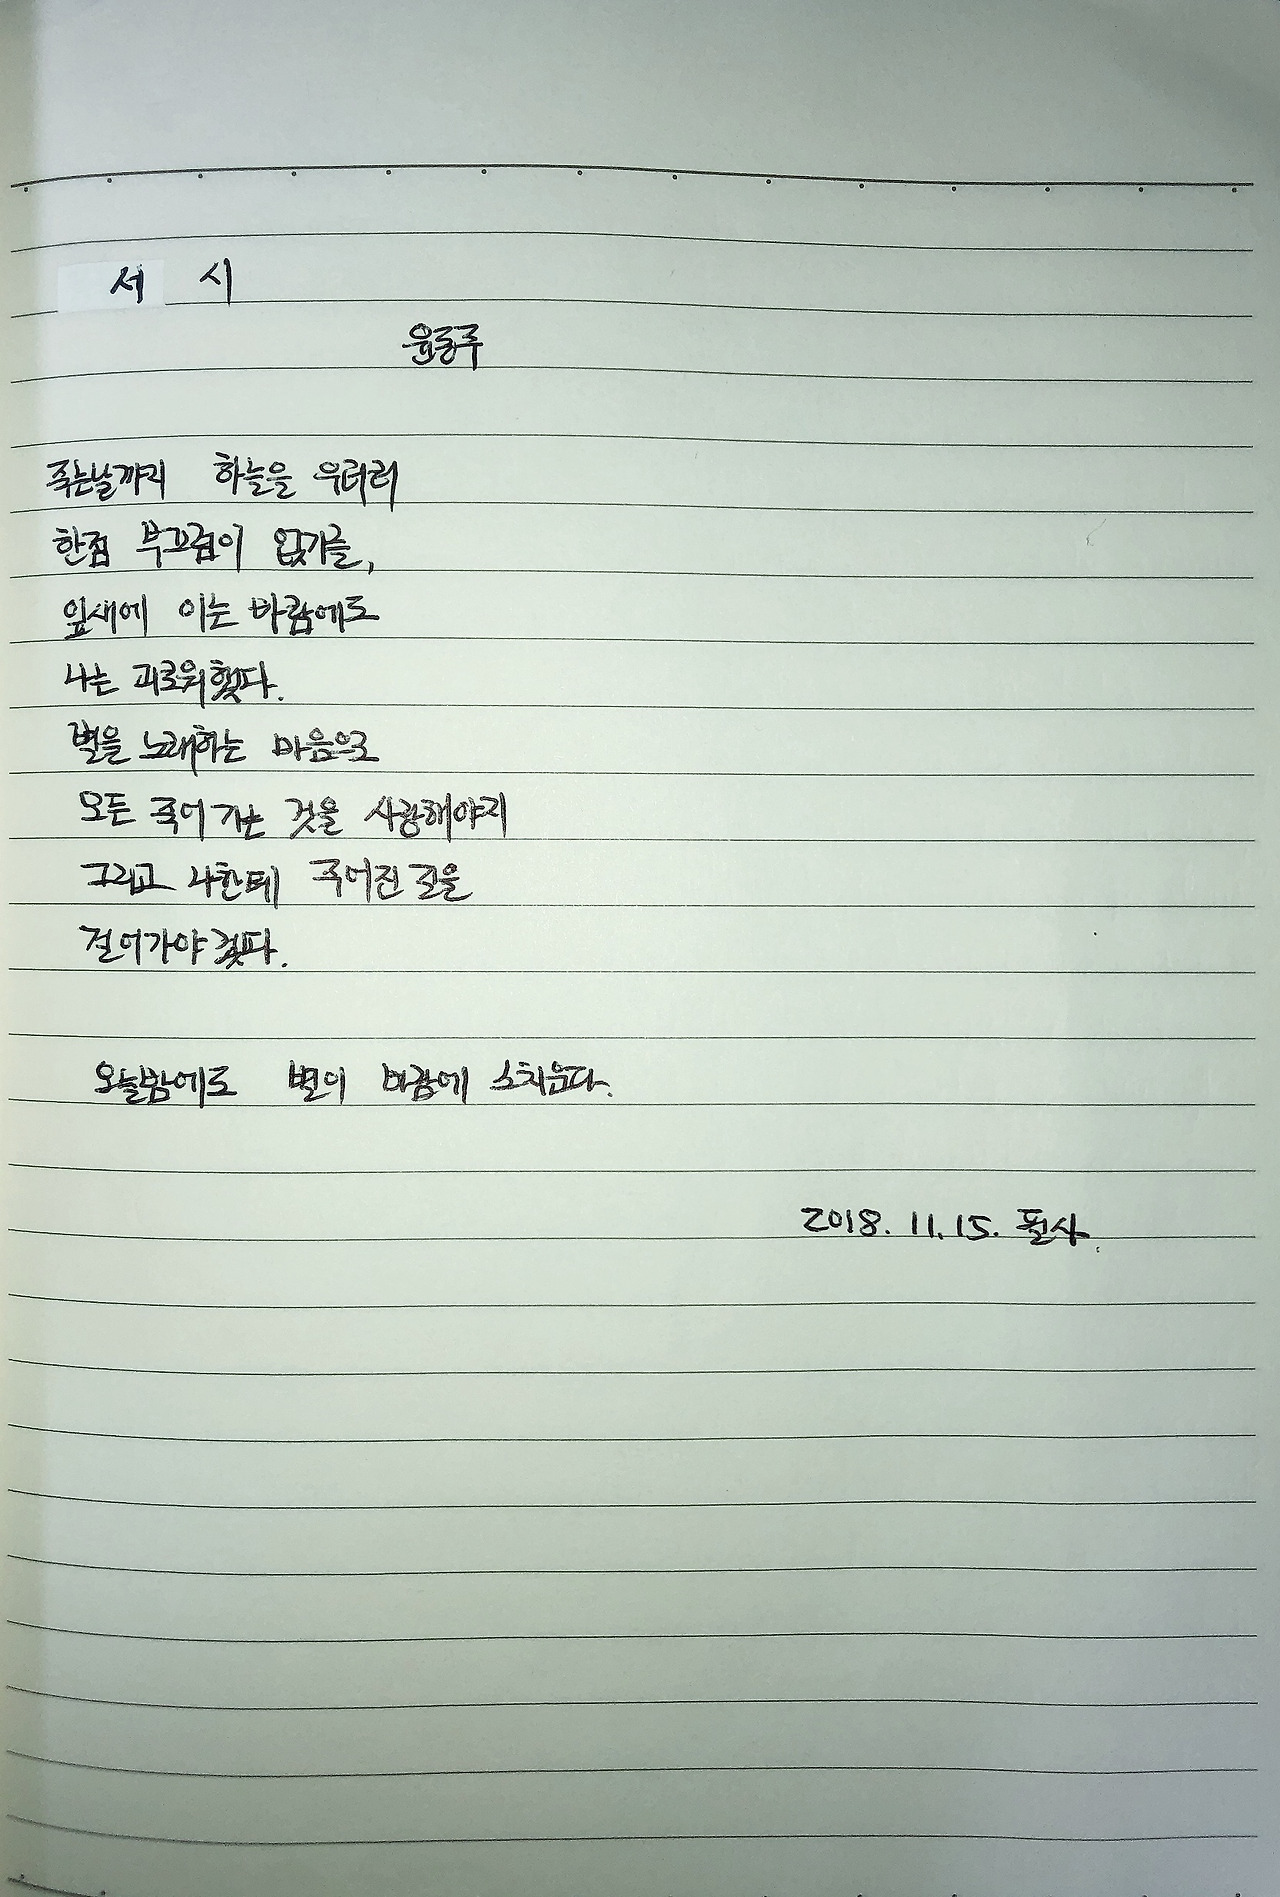 서 시
윤동주
죽는날까지 하늘을 우러러
한점 부끄럼이 없기를,
잎새에 이는 바람에도
나는 괴로워했다.
별을 노래하는 마음으로
모든 죽어 가는 것을 사랑해야지
그리고 나한테 주어진 길을
걸어가야겠다.
오늘밤에도 별이 바람에 스치운다.
2018. 11. 15. 필사.